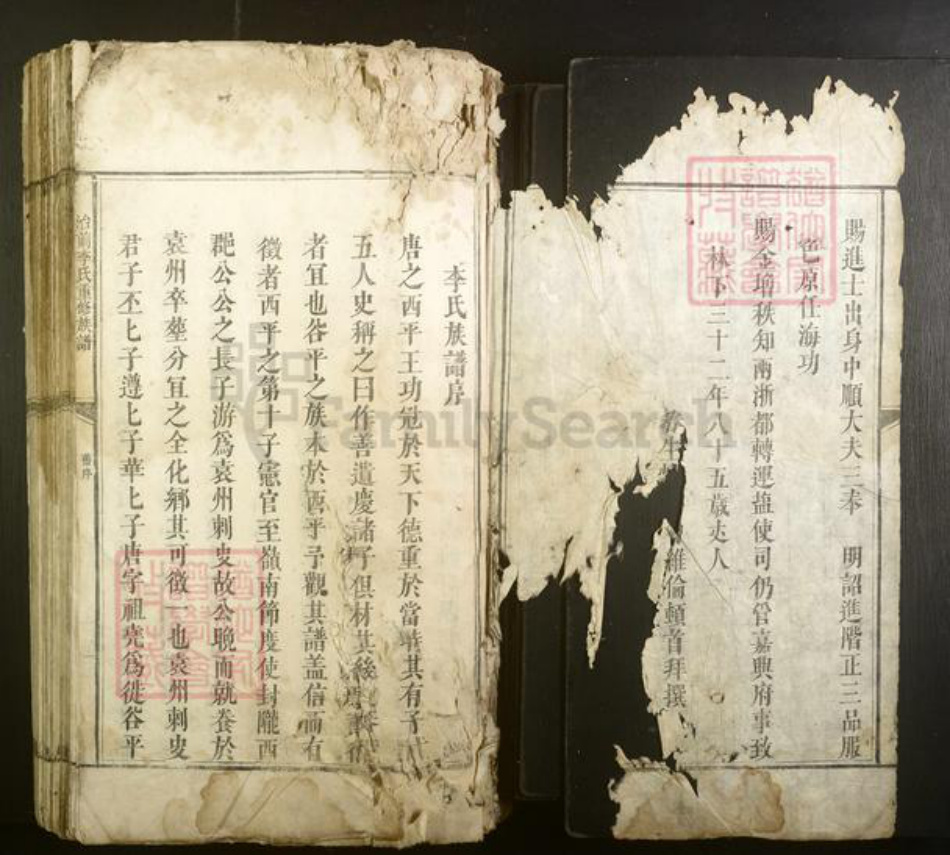 賜進士出身中順大夫三奉 明詔進階正三品服
色原任海功
賜金增秩知兩浙都轉運鹽使司仍管嘉興府事致
林下三十二年八十五歲丈人
維倫頓首拜撰
李氏族譜序
唐之西平王功冠於天下德重於當時其有子十
五人史稱之曰作善遺慶諸子俱材其後
者宜也谷平之族本於西平予觀其譜蓋信而有
徵者西平之第十子憲官至嶺南節度使封隴西
郡公公之長子游爲袁州刺史故公晚而就養於
袁州卒塟分宜之全化鄉其可徵一也袁州刺史
君子丕匕子遵匕子華匕子唐字祖堯爲徙谷平
李氏重修族譜
舊序
FamilySearch